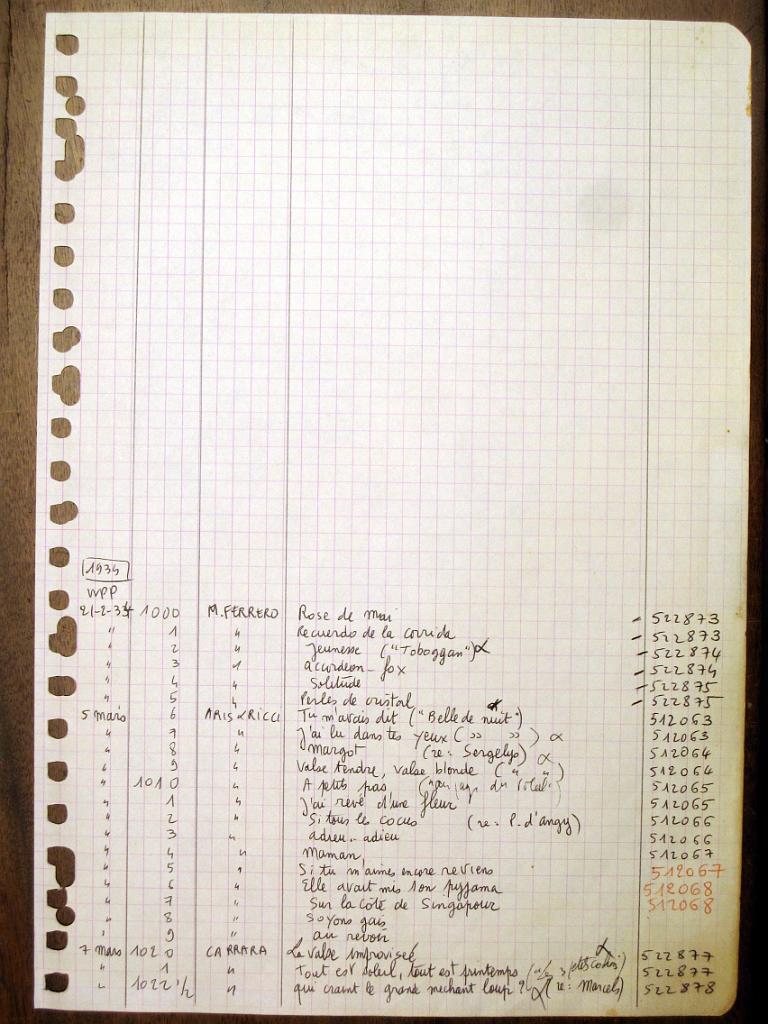 1934
WPP
21-2-34 1000 M.FERRERO Rose de Mai - 522873
" 1 " Recuerdo de la corrida - 522873
" 2 " Jeunesse ("Toboggan") α - 522874
" 3 " accordéon-fox - 522874
" 4 " Solitude - 522875
" 5 " Perles de cristal - 522875
5 mars 6 ARIS & RICCI Tu m'avais dit ("Belle de nuit") 512063
" 7 " J'ai lu dans tes yeux ( " " ) α 512063
" 8 " Margot (re: Sergelys) α 512064
" 9 " Valse tendre, valse blonde ( " " ) 512064
" 1010 " A petits pas du 512065
" 1 " J'ai revé d'une fleur 512065
" 2 " Si tous les cocus (re: P. d'angy) 512066
" 3 " adieu-adieu 512066
" 4 " Maman, 512067
" 5 " Si tu m'aimes encore reviens 512067
" 6 " Elle avait mis son pyjama 512068
" 7 Sur la côte de Singapour 512068
" 8 " Soyons gais
" 9 " au revoir
7 mars 1020 CARRARA La valse improvisée 522877
" 1 " Tout est soleil, tout est printemps α 522877
" 1022 1/2 " qui craint le grand mechant loup ? α (re: Marcels) 522878